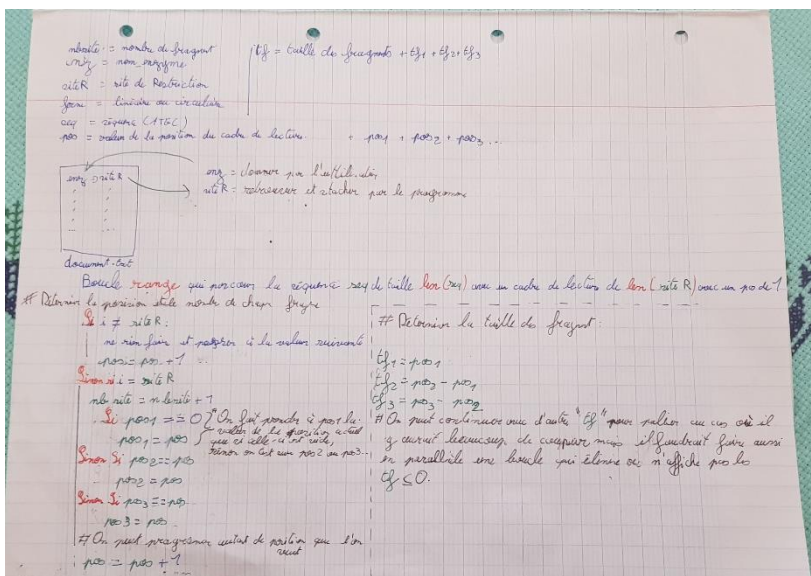 nbsite = nombre de fragment
enz = nom enzyme
siteR = site de Restriction
forme = linéaire ou circulaire
seq = séquence (ATGC)
pos = valeur de la position du cadre de lecture + pos1 + pos2 + pos3...
tf = taille des fragments + tf1 + tf2 + tf3
enz siteR
document.txt
enz = donner par l'utilisateur
siteR = et stocker par le programme
Boucle range qui parcour la séquence seq de taille len(seq) avec un cadre de lecture de len(siteR) avec un pas de 1
# Déterminer la position et le nombre de chaque
Si i ≠ siteR :
ne rien faire et passer à la valeur suivante
pos = pos + 1
Sinon si i = siteR
nb site = nb site + 1
Si pos1 == 0
pos1 = pos
"On fait prendre à pos1 la
valeur de la position actuel
que si celle-ci est vide,
sinon on test avec pos2 ou pos3...
Sinon Si pos2 == pos
pos2 = pos
Sinon Si pos3 == pos
pos3 = pos
# On peut programmer autant de position que l'on
veut
pos = pos + 1
# Déterminer la taille des fragment :
tf1 = pos1
tf2 = pos2 - pos1
tf3 = pos3 - pos2
# On peut continuer avec d'autre "tf" pour palier au cas où il
y aurait beaucoup de coupure mais il faudrait faire aussi
en parallèle une boucle qui élimine ou n'affiche pas les
tf ≤ 0.